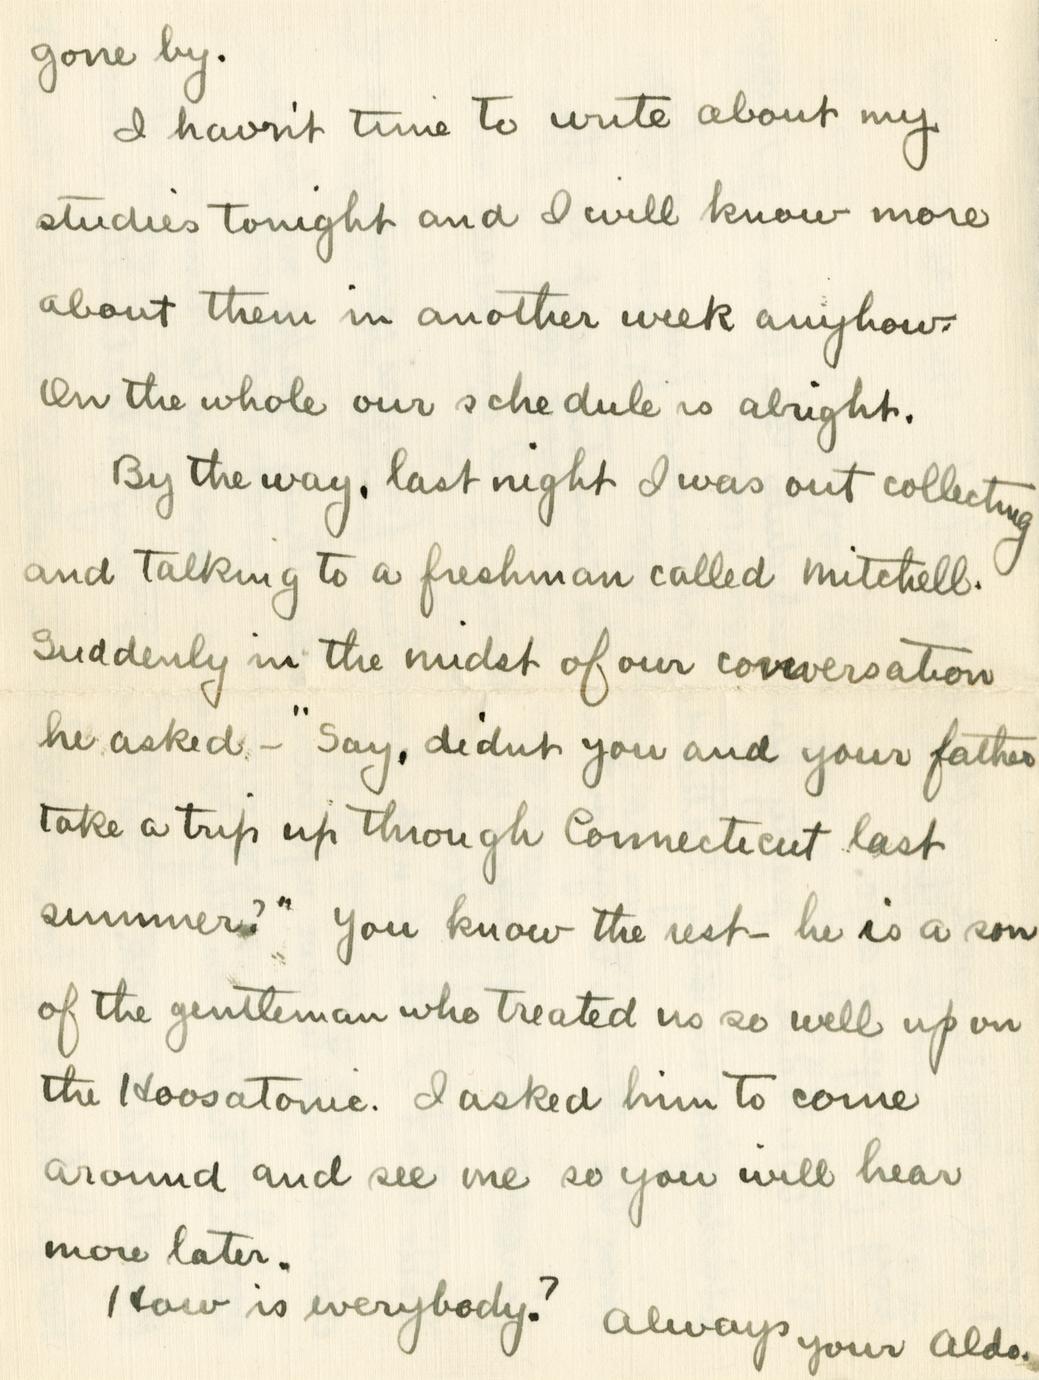 gone by.
I havn't time to write about my
studies tonight and I will know more
about them in another week anyhow.
On the whole our schedule is alright.
By the way, last night I was out collecting
and talking to a freshman called Mitchell.
Suddenly in the midst of our conversation
he asked - "Say, didnt you and your father
take a trip up through Connecticut last
summer?" You know the rest - he is a son
of the gentleman who treated us so well up on
the Hoosatonic. I asked him to come
around and see me so you will hear
more later.
How is everybody?
Always your Aldo.